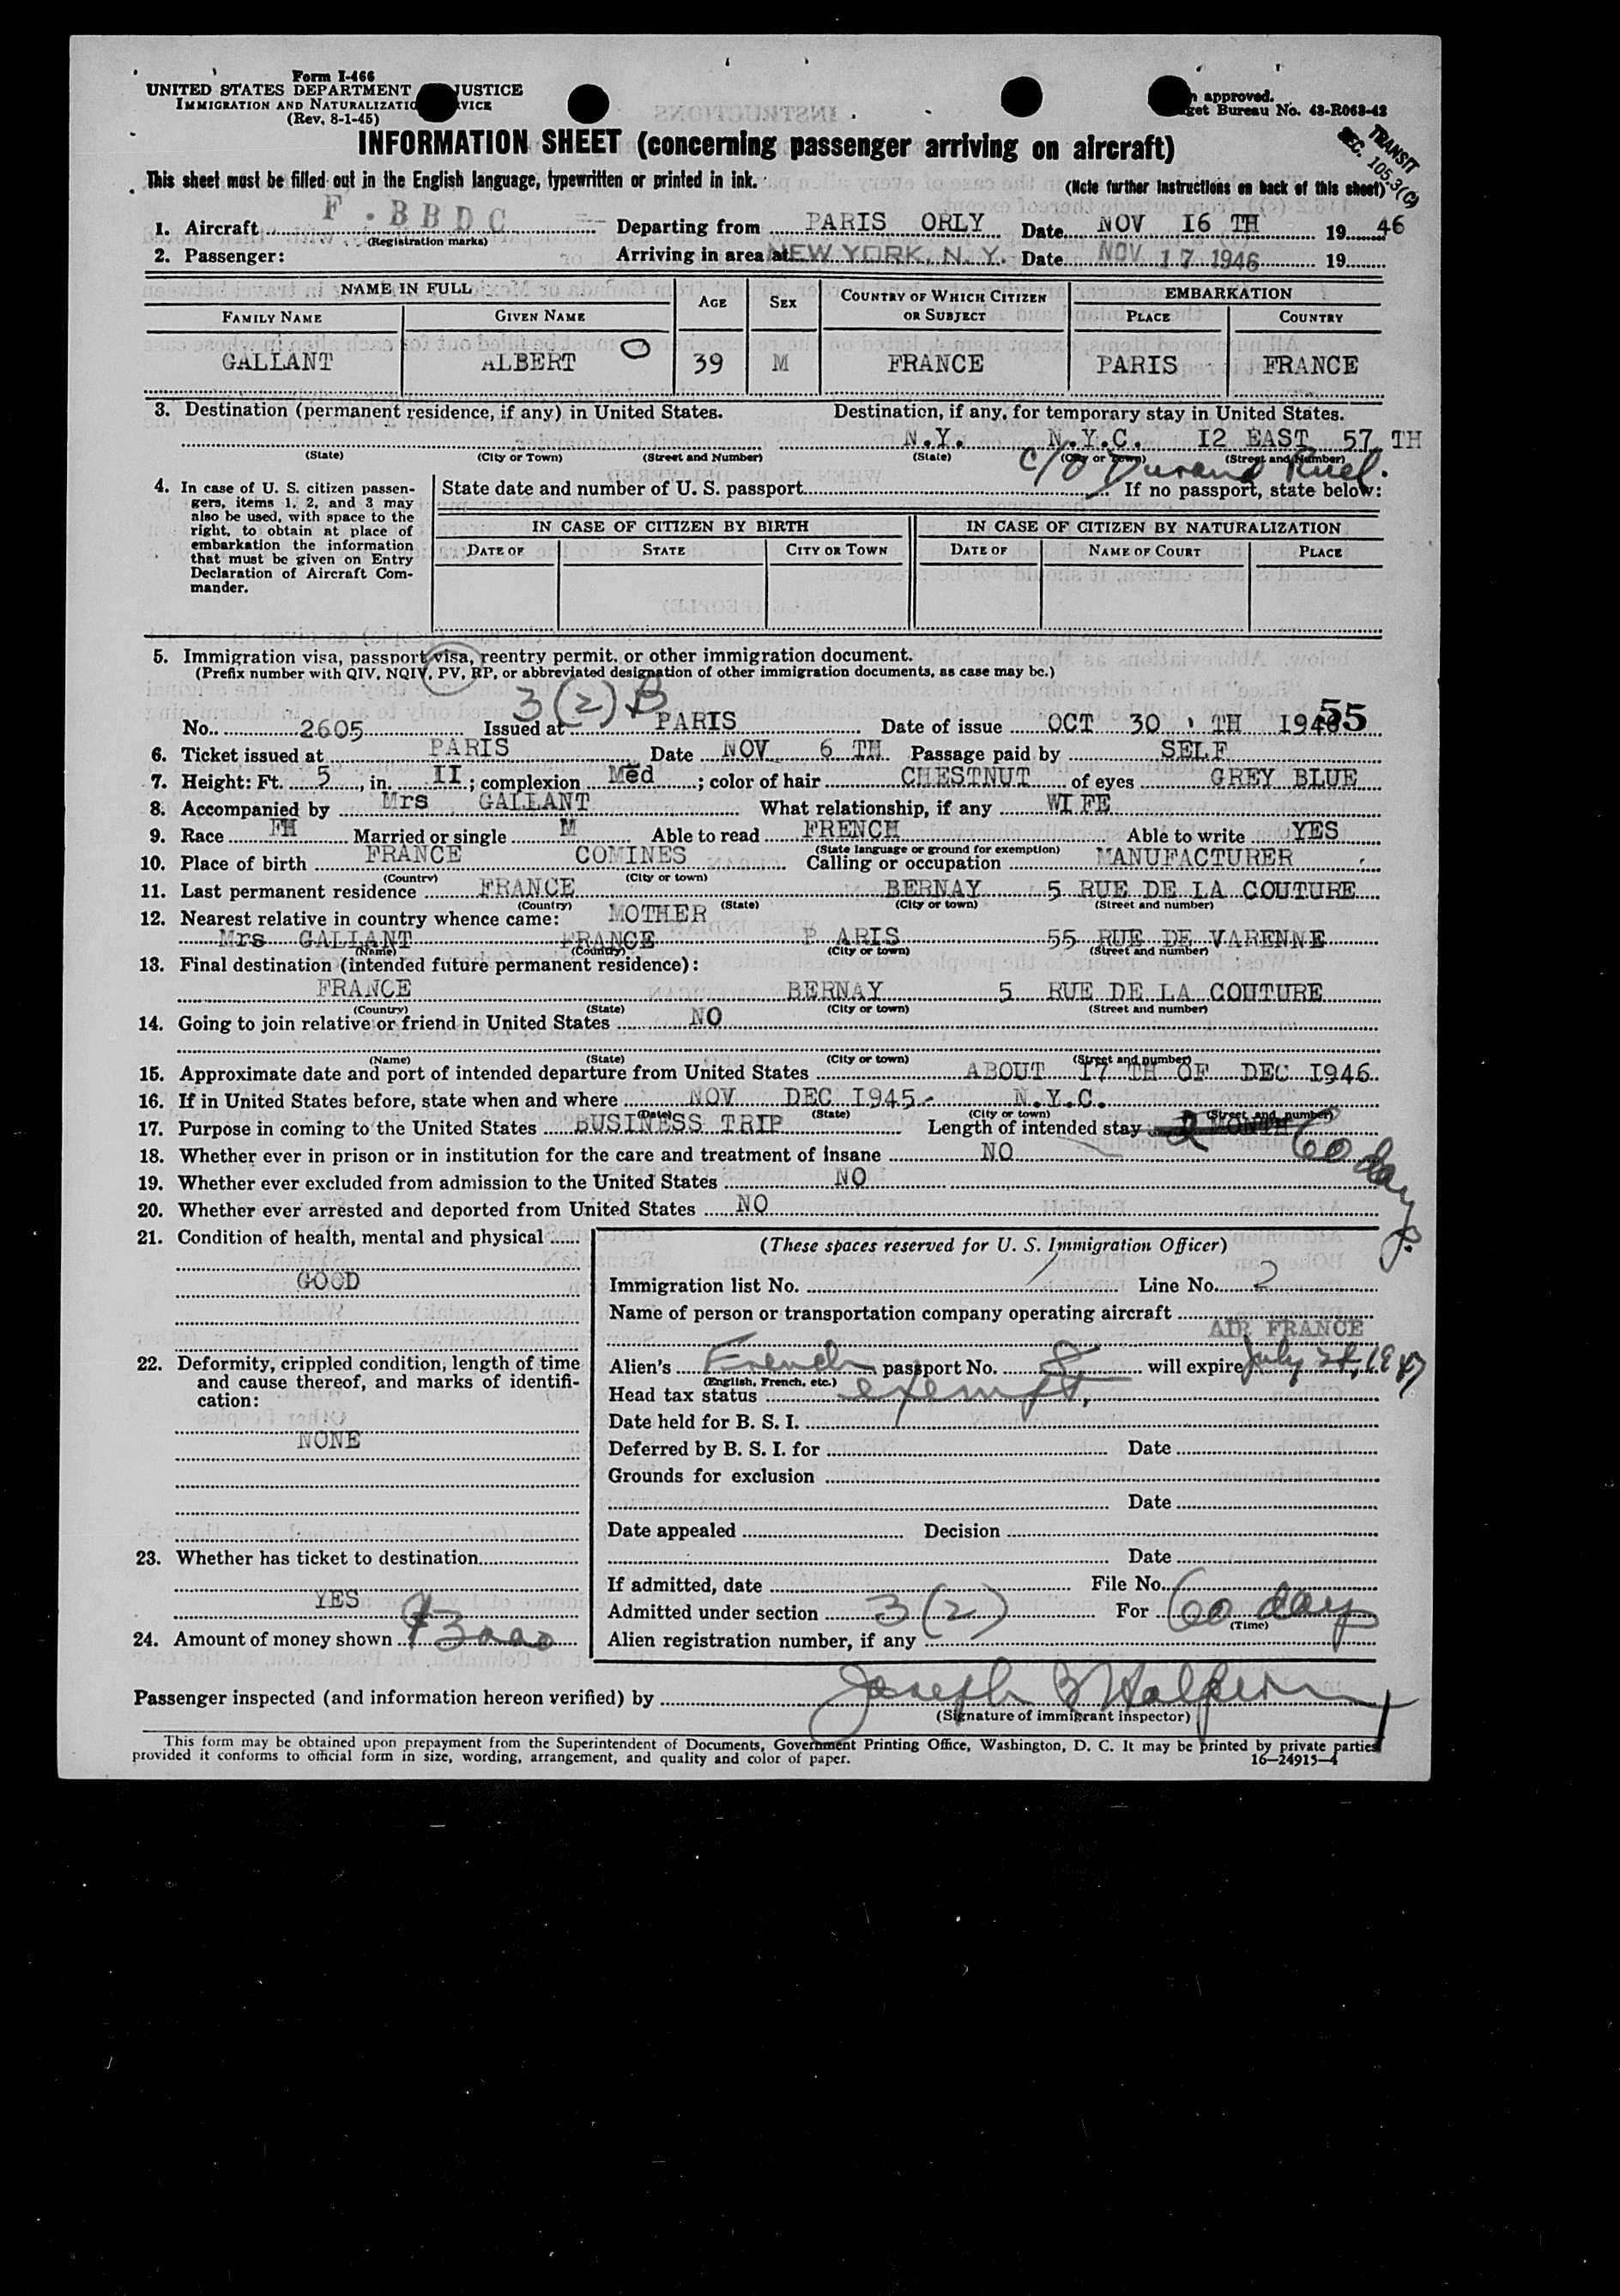 Form I-466
UNITED STATES DEPARTMENT JUSTICE
IMMIGRATION AND NATURALIZATIO RVICE
(Rev. 8-1-45)
approved.
get Bureau No. 43-R063-42
TRANSIT
SEC. 105.3(C)
INFORMATION SHEET (concerning passenger arriving on aircraft)
This sheet must be filled out in the English language, typewritten or printed in ink.
(Note further instructions on back of this sheet)
1. Aircraft F.BBDC Departing from PARIS ORLY Date NOV I6 TH 19 46
(Registration marks)
2. Passenger: Arriving in area at NEW YORK, N. Y. Date NOV 17 1946 19
NAME IN FULL AGE SEX COUNTRY OF WHICH CITIZEN OR SUBJECT EMBARKATION
FAMILY NAME GIVEN NAME PLACE COUNTRY
GALLANT ALBERT O 39 M FRANCE PARIS FRANCE
3. Destination (permanent residence, if any) in United States. Destination, if any, for temporary stay in United States.
N.Y. N.Y.C. I2 EAST 57 TH
(State) (City or Town) (Street and Number) (State) (City or Town) (Street and Number)
c/o Durand Ruel.
4. In case of U. S. citizen passengers, items 1, 2, and 3 may also be used, with space to the right, to obtain at place of embarkation the information that must be given on Entry Declaration of Aircraft Commander.
State date and number of U. S. passport If no passport, state below:
IN CASE OF CITIZEN BY BIRTH IN CASE OF CITIZEN BY NATURALIZATION
DATE OF STATE CITY OR TOWN DATE OF NAME OF COURT PLACE
5. Immigration visa, passport visa, reentry permit, or other immigration document.
(Prefix number with QIV, NQIV, PV, RP, or abbreviated designation of other immigration documents, as case may be.)
3(2)B
No. 2605 Issued at PARIS Date of issue OCT 30 TH 1946 55
6. Ticket issued at PARIS Date NOV 6 TH Passage paid by SELF
7. Height: Ft. 5, in. II; complexion Med; color of hair CHESTNUT of eyes GREY BLUE
8. Accompanied by Mrs GALLANT What relationship, if any WIFE
9. Race FH Married or single M Able to read FRENCH Able to write YES
(State language or ground for exemption)
10. Place of birth FRANCE COMINES Calling or occupation MANUFACTURER
(Country) (City or town)
11. Last permanent residence FRANCE BERNAY 5 RUE DE LA COUTURE
(Country) (State) (City or town) (Street and number)
12. Nearest relative in country whence came: MOTHER
Mrs GALLANT FRANCE PARIS 55 RUE DE VARENNE
(Name) (Country) (City or town) (Street and number)
13. Final destination (intended future permanent residence):
FRANCE BERNAY 5 RUE DE LA COUTURE
(Country) (State) (City or town) (Street and number)
14. Going to join relative or friend in United States NO
(Name) (State) (City or town) (Street and number)
15. Approximate date and port of intended departure from United States ABOUT I7 TH OF DEC I946
16. If in United States before, state when and where NOV DEC I945- N.Y.C.
(Date) (State) (City or town) (Street and number)
17. Purpose in coming to the United States BUSINESS TRIP Length of intended stay 60 days.
18. Whether ever in prison or in institution for the care and treatment of insane NO
19. Whether ever excluded from admission to the United States NO
20. Whether ever arrested and deported from United States NO
21. Condition of health, mental and physical
GOOD
22. Deformity, crippled condition, length of time and cause thereof, and marks of identification:
NONE
23. Whether has ticket to destination
YES
24. Amount of money shown $3000
(These spaces reserved for U. S. Immigration Officer)
Immigration list No. 1 Line No. 2
Name of person or transportation company operating aircraft
AIR FRANCE
Alien's French passport No. 8 will expire July 1947
(English, French, etc.)
Head tax status exempt,
Date held for B. S. I.
Deferred by B. S. I. for Date
Grounds for exclusion
Date
Date appealed Decision
Date
If admitted, date File No.
Admitted under section 3(2) For 60 days
(Time)
Alien registration number, if any
Passenger inspected (and information hereon verified) by Joseph B Halperin
(Signature of immigrant inspector)
This form may be obtained upon prepayment from the Superintendent of Documents, Government Printing Office, Washington, D. C. It may be printed by private parties
provided it conforms to official form in size, wording, arrangement, and quality and color of paper. 16—24915-4